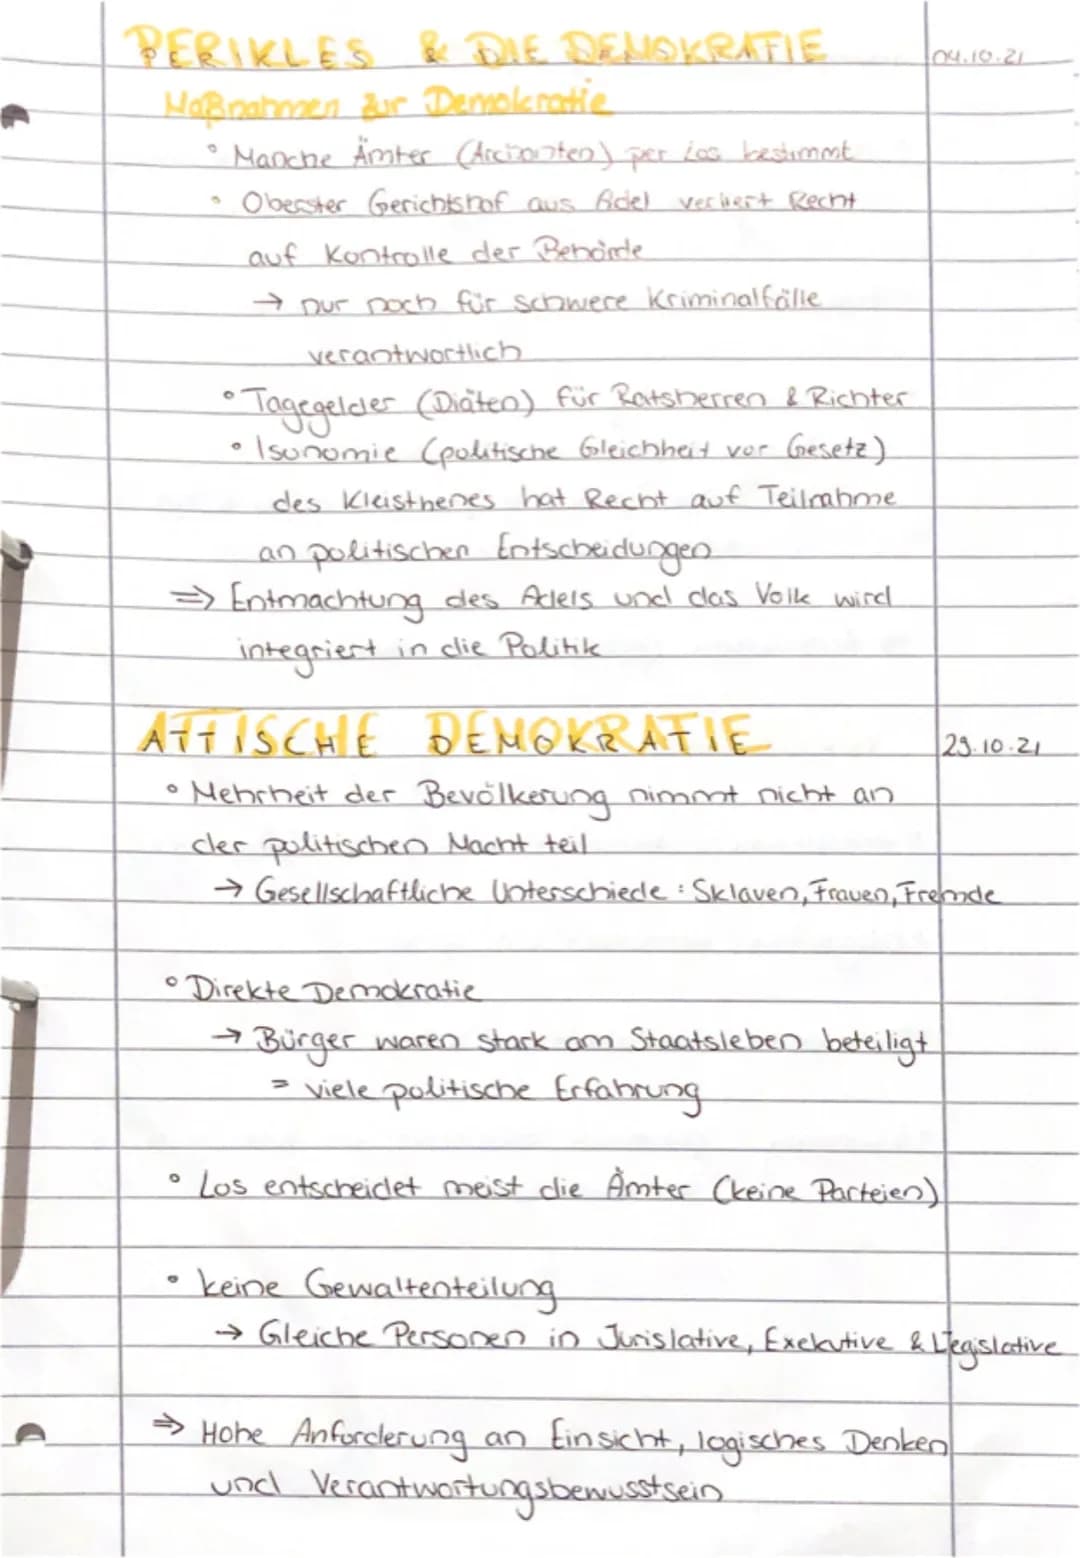 PERIKLES & DIE DEMOKRATIE 04.10.21
Maßnahmen zur Demokratie
° Manche Ämter (Archonten) per Los bestimmt
° Oberster Gerichtshof aus Adel verliert Recht
auf Kontrolle der Behörde
→ nur noch für schwere Kriminalfälle
verantwortlich
° Tagegelder (Diäten) für Ratsherren & Richter
° Isonomie (politische Gleichheit vor Gesetz)
des Kleisthenes hat Recht auf Teilnahme
an politischen Entscheidungen
⇒ Entmachtung des Adels und das Volk wird
integriert in die Politik
ATTISCHE DEMOKRATIE 29.10.21
° Mehrheit der Bevölkerung nimmt nicht an
der politischen Macht teil
→ Gesellschaftliche Unterschiede : Sklaven, Frauen, Fremde
° Direkte Demokratie
→ Bürger waren stark am Staatsleben beteiligt
= viele politische Erfahrung
° Los entscheidet meist die Ämter (keine Parteien)
° keine Gewaltenteilung
→ Gleiche Personen in Jurislative, Exekutive & Legislative
⇒ Hohe Anforderung an Einsicht, logisches Denken
und Verantwortungsbewusstsein